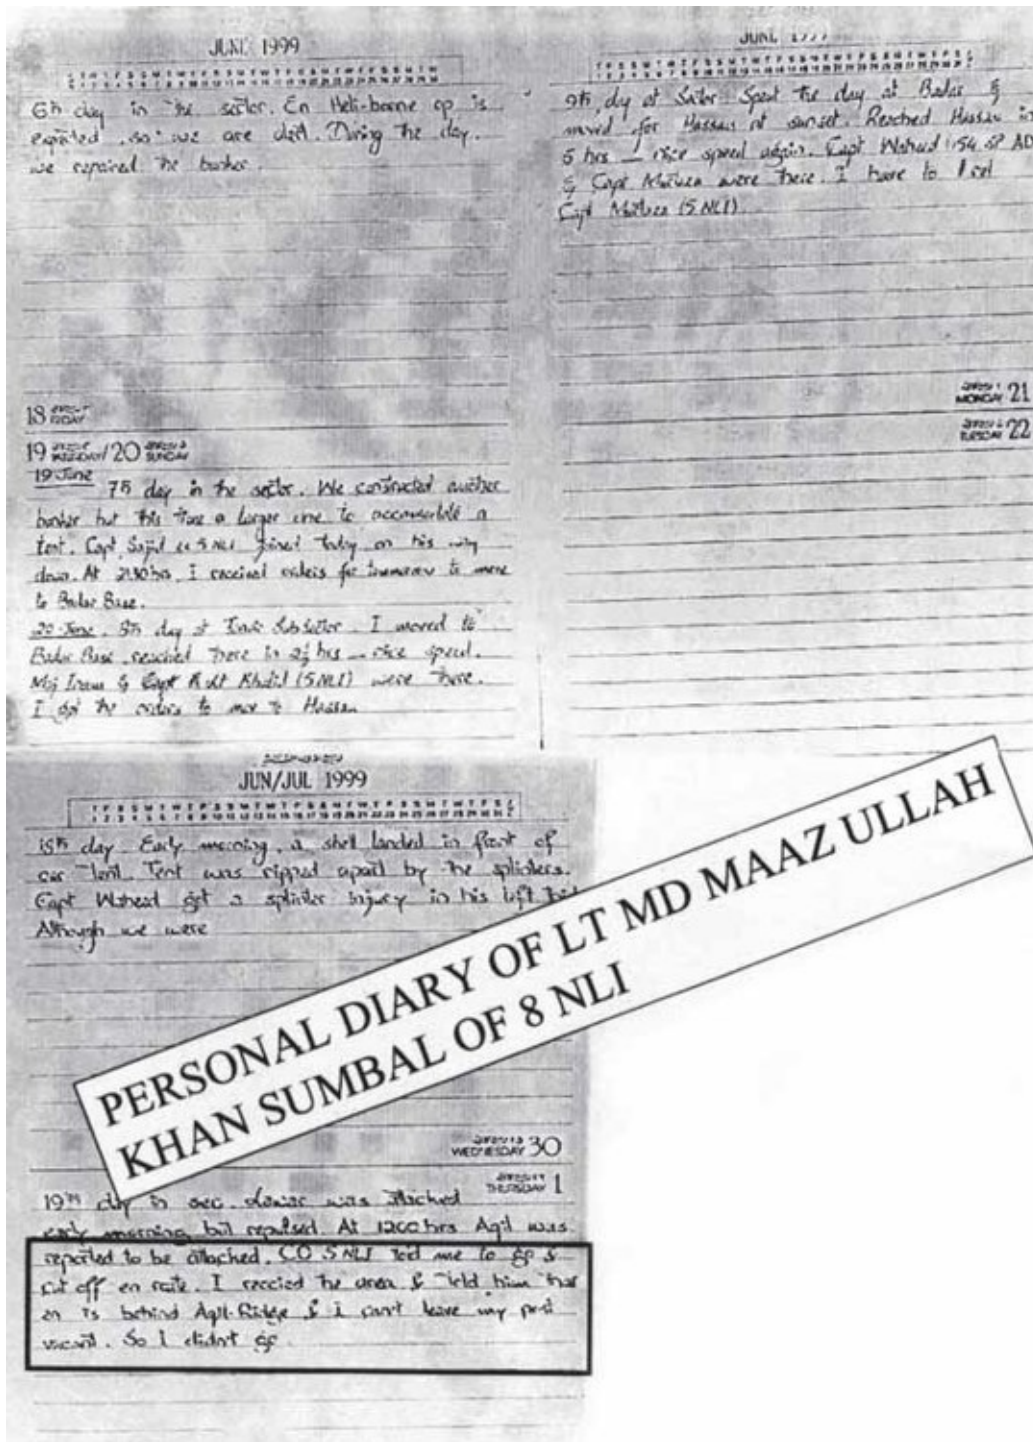 JUNE 1999
6th day in the sector. En Heli-borne op is
expected. so we are alert. During the day
we repaired the bunker.
18 FRIDAY
19 SATURDAY/20 SUNDAY
19 June 7th day in the sector. We constructed another
bunker but this time a larger one to accomodate a
tent. Capt Sajid 5 NLI joined today on his way
down. At 2130 hrs I received orders for tomorrow to move
to Badar Base.
20 June. 8th day at Sub Sector. I moved to
Badar Base reached there in 2½ hrs _ nice speed.
Maj & Capt Khalid (5 NLI) were there.
I got the orders to move to Hassan
JUNE 1999
9th day at Sector Spent the day at Badar &
moved for Hassan at sunset. Reached Hassan in
5 hrs _ nice speed again. Capt Waheed (154 SP AD
& Capt Murtaza were there. I have to
Capt Murtaza (5 NLI)
MONDAY 21
TUESDAY 22
JUN/JUL 1999
18th day Early morning, a shell landed in front of
our Tent. Tent was ripped apart by the splinters.
Capt Waheed got a splinter injury in his left
Although we were
WEDNESDAY 30
THURSDAY 1
19th day in sec. was attacked
early morning but repulsed. At 1200 hrs Aqil was
reported to be attacked. CO 5 NLI told me to go &
cut off en route. I recced the area & told him that
en is behind Aqil-Ridge & i can't leave my post
vacant. So I didn't go.
PERSONAL DIARY OF LT MD MAAZ ULLAH
KHAN SUMBAL OF 8 NLI